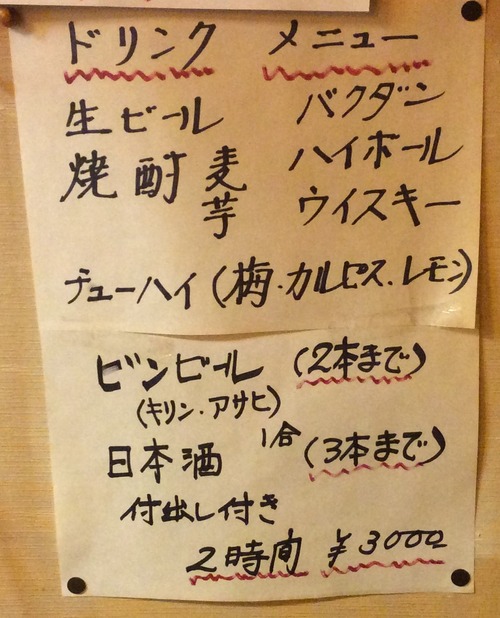 ドリンク メニュー
生ビール バクダン
焼酎 麦 ハイボール
芋 ウイスキー
チューハイ(梅・カルピス、レモン)
ビンビール (2本まで)
(キリン・アサヒ)
日本酒 1合 (3本まで)
付出し付き
2時間 ¥3000